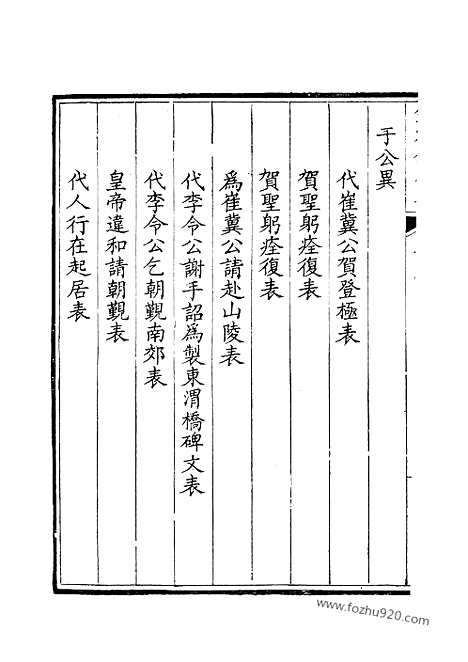 于公異
代崔冀公賀登極表
賀聖躬痊復表
賀聖躬痊復表
為崔冀公請赴山陵表
代李令公謝手詔為製東渭橋碑文表
代李令公乞朝覲南郊表
皇帝違和請朝覲表
代人行在起居表
www.fozhu920.com